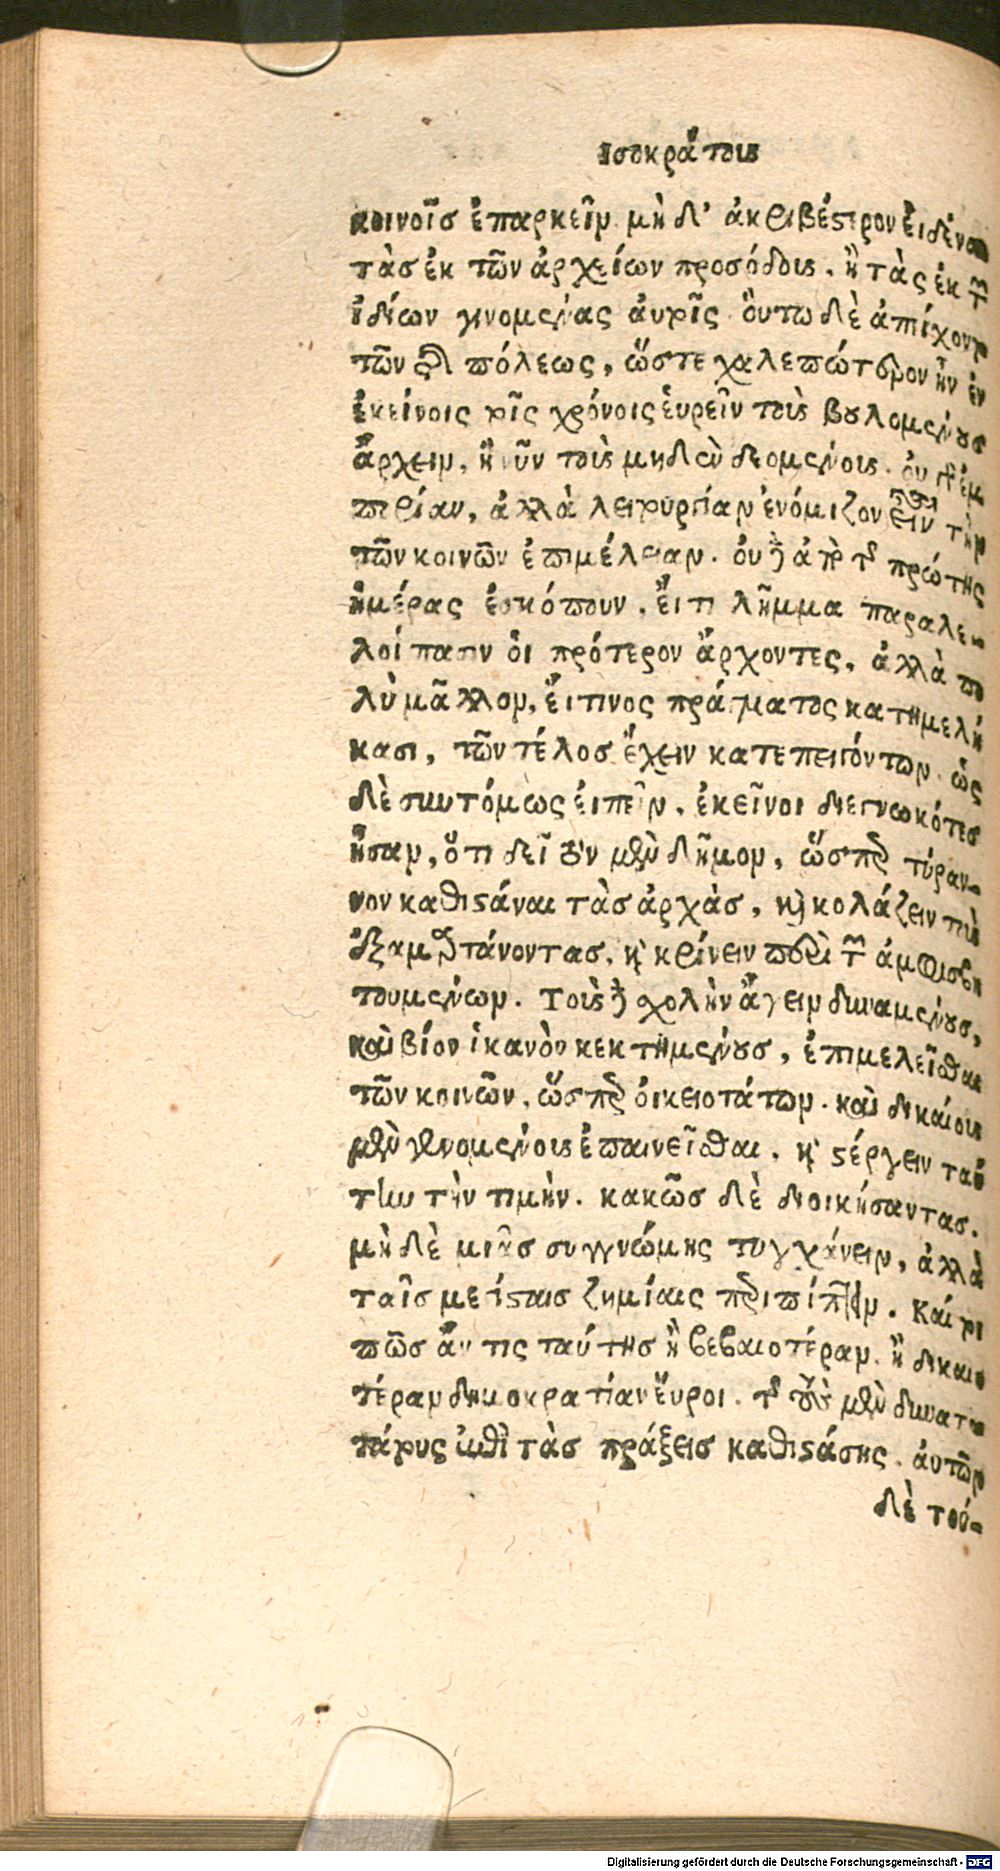 Ισοκράτους
κοινοῖσ ἐπαρκεῖν. μὴ δ' ἀκριβέστερον εἰδέναι
τὰσ ἐκ τῶν ἀρχείων προσόδους. ἢ τὰς ἐκ τῶν
ἰδίων γινομένας ἀυτοῖς. ὅυτω δὲ ἀπείχοντο
τῶν τῆς πόλεως, ὥστε χαλεπώτερον ἦν ἐν
ἐκείνοις τοῖς χρόνοις ἑυρεῖν τοὺς βουλομένους
ἄρχειν, ἢ νῦν τοὺς μηδὲν δεομένους. ὀυ γὰρ ἐμ
πορίαν, ἀλλὰ λειτουργίαν ἐνόμιζον εἶναι τὴν
τῶν κοινῶν ἐπιμέλειαν. ὀυδὲ ἀπὸ τῆς πρώτης
ἡμέρας ἐσκόπουν. ἔιτι λῆμμα παραλε-
λοίπασιν ὁι πρότερον ἄρχοντες, ἀλλὰ πο
λὺ μᾶλλον, ἔιτινος πράγματος κατημελή
κασι, τῶν τέλοσ ἔχειν κατεπειγόντων. ὡς
δὲ συντόμως ἐιπεῖν. ἐκεῖνοι διεγνωκότεσ
ἦσαν, ὅτι δεῖ τὸν μὲν δῆμον, ὥσπερ τύραν-
νον καθιστάναι τὰσ ἀρχὰσ, καὶ κολάζειν τοὺς
ἐξαμαρτάνοντασ, καὶ κρίνειν περὶ τῶν ἀμφισβη
τουμένων. Τοὺς δὲ σχολὴν ἄγειν δυναμένουσ,
καὶ βίον ἱκανὸν κεκτημένουσ, ἐπιμελεῖσθαι
τῶν κοινῶν, ὥσπερ ὀικειοτάτων. καὶ δικαίους
μὲν γενομένους ἐπαινεῖσθαι. καὶ στέργειν ταύ
την τὴν τιμήν. κακῶσ δὲ διοικήσαντας.
μὴ δὲ μιᾶσ συγγνώμης τυγχάνειν, ἀλλὰ
ταῖσ μεγίσταισ ζημίαις περιπίπτειν. Καίτοι
πῶσ ἄν τις ταύτησ ἢ βεβαιοτέραν. ἢ δικαιο
τέραν δημοκρατίαν ἕυροι. τῆς τοὺς μὲν δυνατω
τάτους ἐπὶ τὰσ πράξεισ καθιστάσης. ἀυτῶν
δὲ τού-
Digitalisierung gefördert durch die Deutsche Forschungsgemeinschaft - DFG